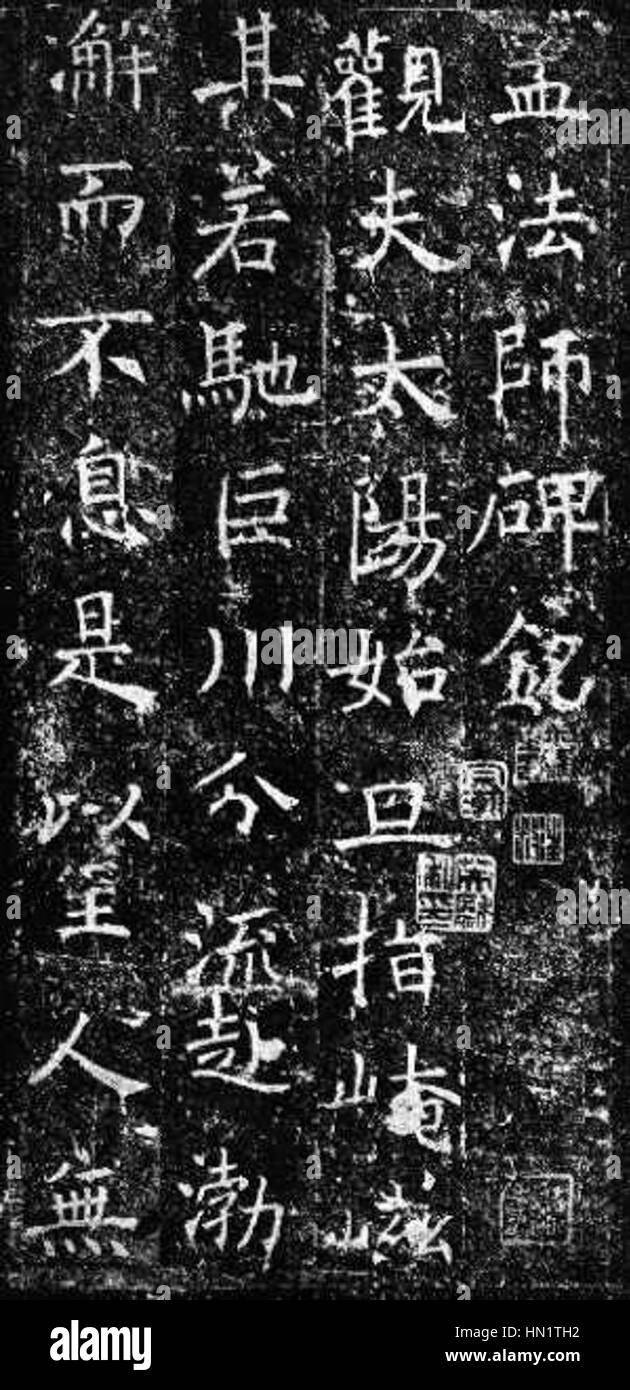 孟法師碑銘
觀夫太陽始旦指崦嵫
其若馳巨川分流赴渤
澥而不息是以至人無
alamy
alamy
Image ID: HN1TH2
www.alamy.com